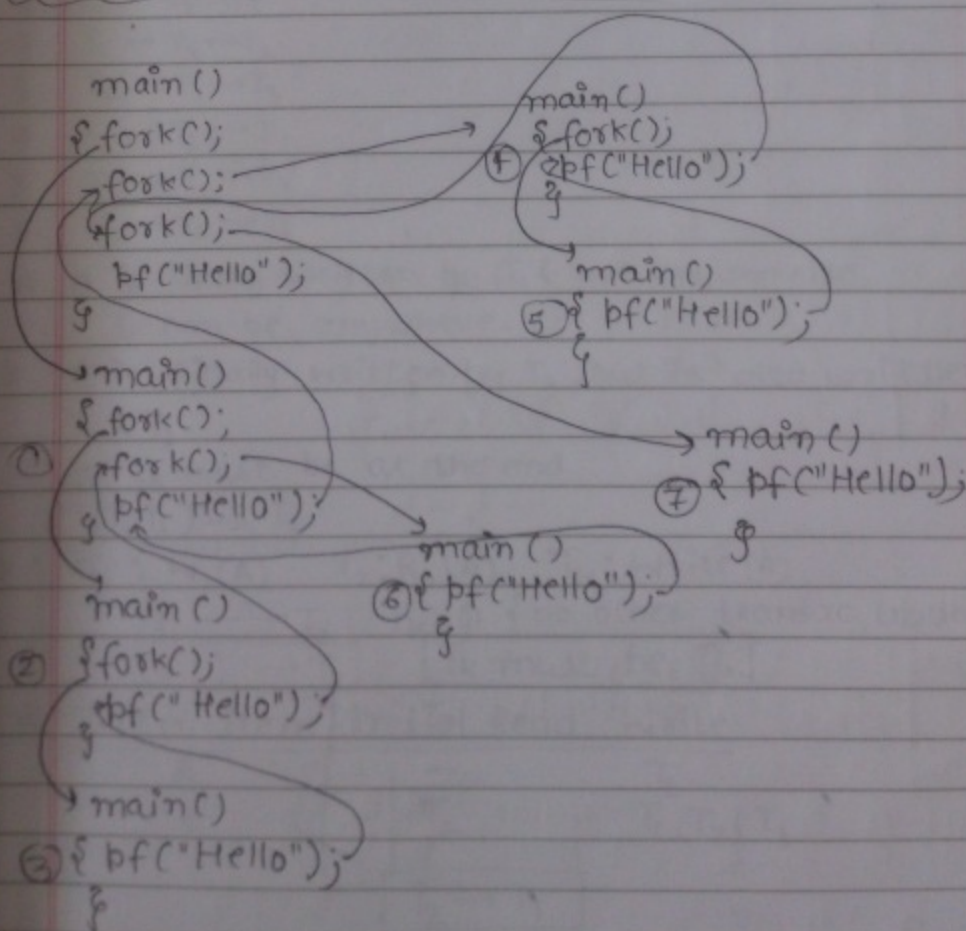 main()
{ fork();
fork();
fork();
pf("Hello");
}
main()
{ fork();
① fork();
pf("Hello");
}
main()
② { fork();
pf("Hello");
}
main()
③ { pf("Hello");
}
main()
{ fork();
④ pf("Hello");
}
main()
⑤ { pf("Hello");
}
main()
⑥ { pf("Hello");
}
main()
⑦ { pf("Hello");
}